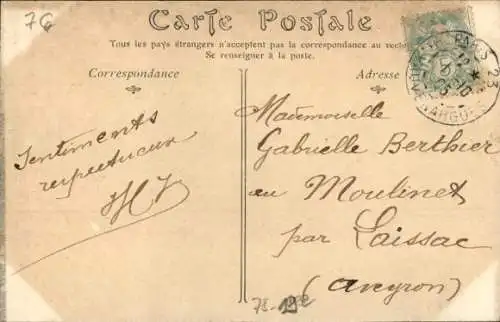 76
Carte Postale
Tous les pays étrangers n'acceptent pas la correspondance au recto
Se renseigner à la poste.
Correspondance
Adresse
PARIS 23
Sentiments
respectueux
Mademoiselle
Gabrielle Berthier
au Moulinet
par Laissac
(Aveyron)